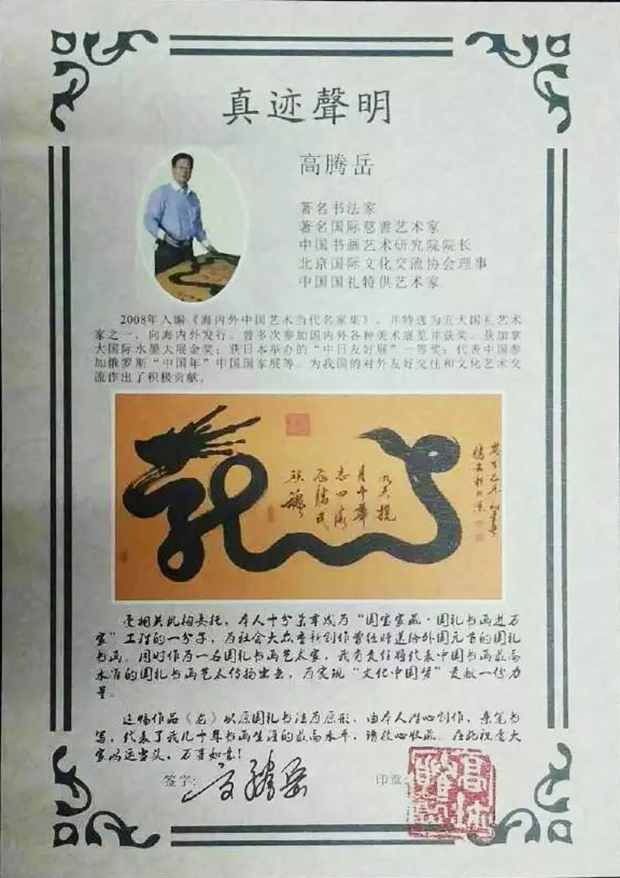 真迹聲明
高腾岳
著名书法家
著名国际慈善艺术家
中国书画艺术研究院院长
北京国际文化交流协会理事
中国国礼特供艺术家
2008年入编《海内外中国艺术当代名家集》，并特选为五大国礼艺术
家之一，向海内外发行。曾多次参加国内外各种美术展览并获奖。获加拿
大国际水墨大展金奖；获日本举办的“中日友好展”一等奖；代表中国参
加俄罗斯“中国年”中国国家展等，为我国的对外友好交往和文化艺术交
流作出了积极贡献。
龙
九天揽
月千举
志四海
飞腾民
族魂
受相关机构委托，本人十分荣幸成为“国宝家藏·国礼书画进万
家”工程的一分子，为社会大众重新创作曾经赠送给外国元首的国礼
书画。同时作为一名国礼书画艺术家，我有责任将代表中国书画最高
水准的国礼书画艺术传扬出去，为实现“文化中国梦”贡献一份力
量。
这幅作品《龙》以原国礼书法为原形，由本人潜心创作，亲笔书
写，代表了我几十年书画生涯的最高水平，请放心收藏。在此祝愿大
家鸿运当头，万事如意！
签字：高腾岳
印章：